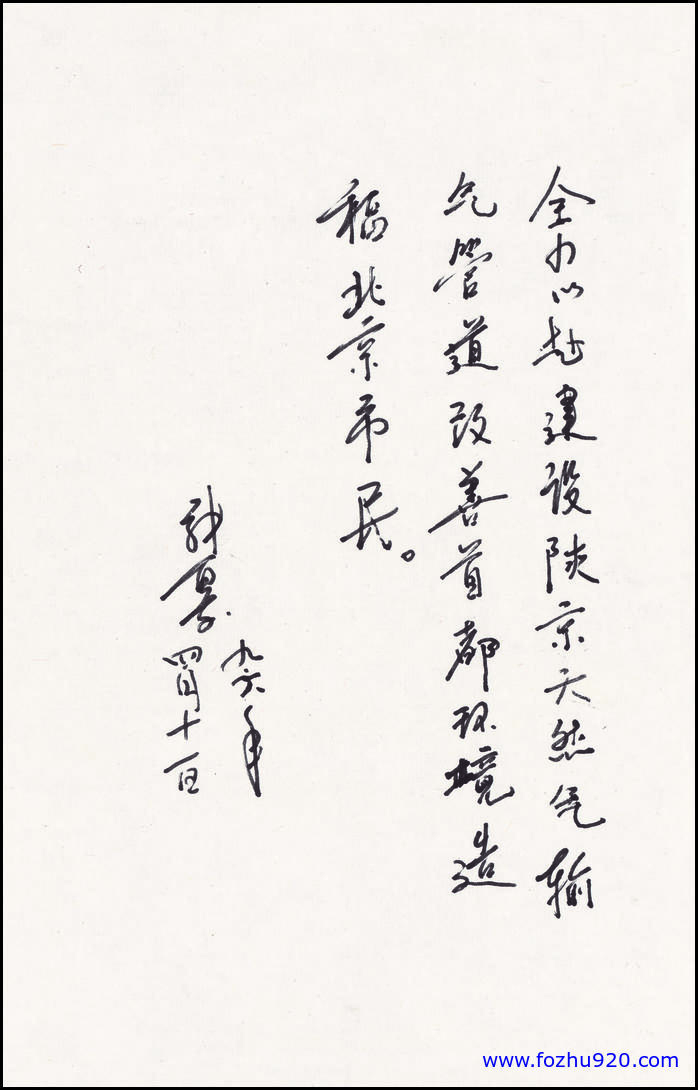 全力以赴建设陕京天然气输
气管道改善首都环境造
福北京市民。
九六年
四月十一日
www.fozhu920.com